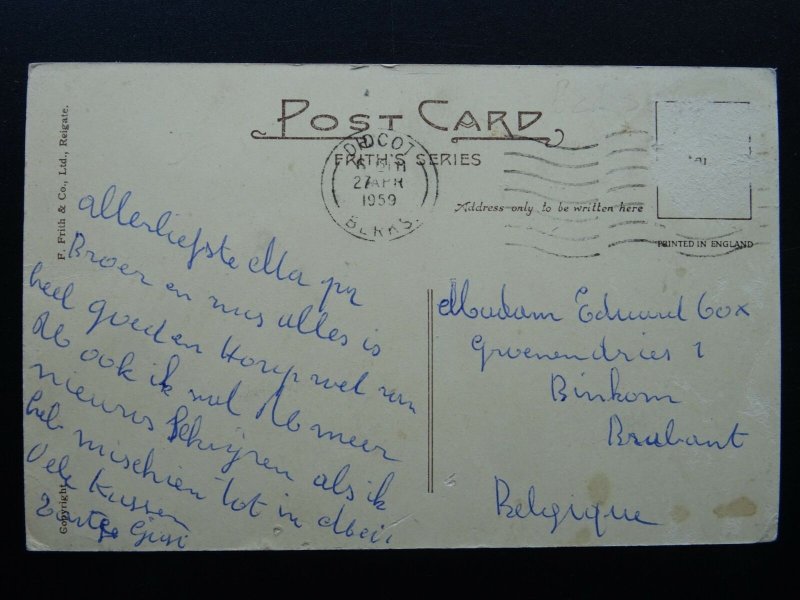 POST CARD
FRITH'S SERIES
DIDCOT
27 APR
1959
BERKS.
Address only to be written here
PRINTED IN ENGLAND
F. Frith & Co., Ltd., Reigate.
Copyright
Allerliefste Ma pa
Broer en zus alles is
heel goed en Hoop wel van
U ook ik zal U meer
nieuws schrijven als ik
heb misschien tot in Mei
Vele Kussen
Madam Eduard Cox
Groenendries 1
Binkom
Brabant
Belgique